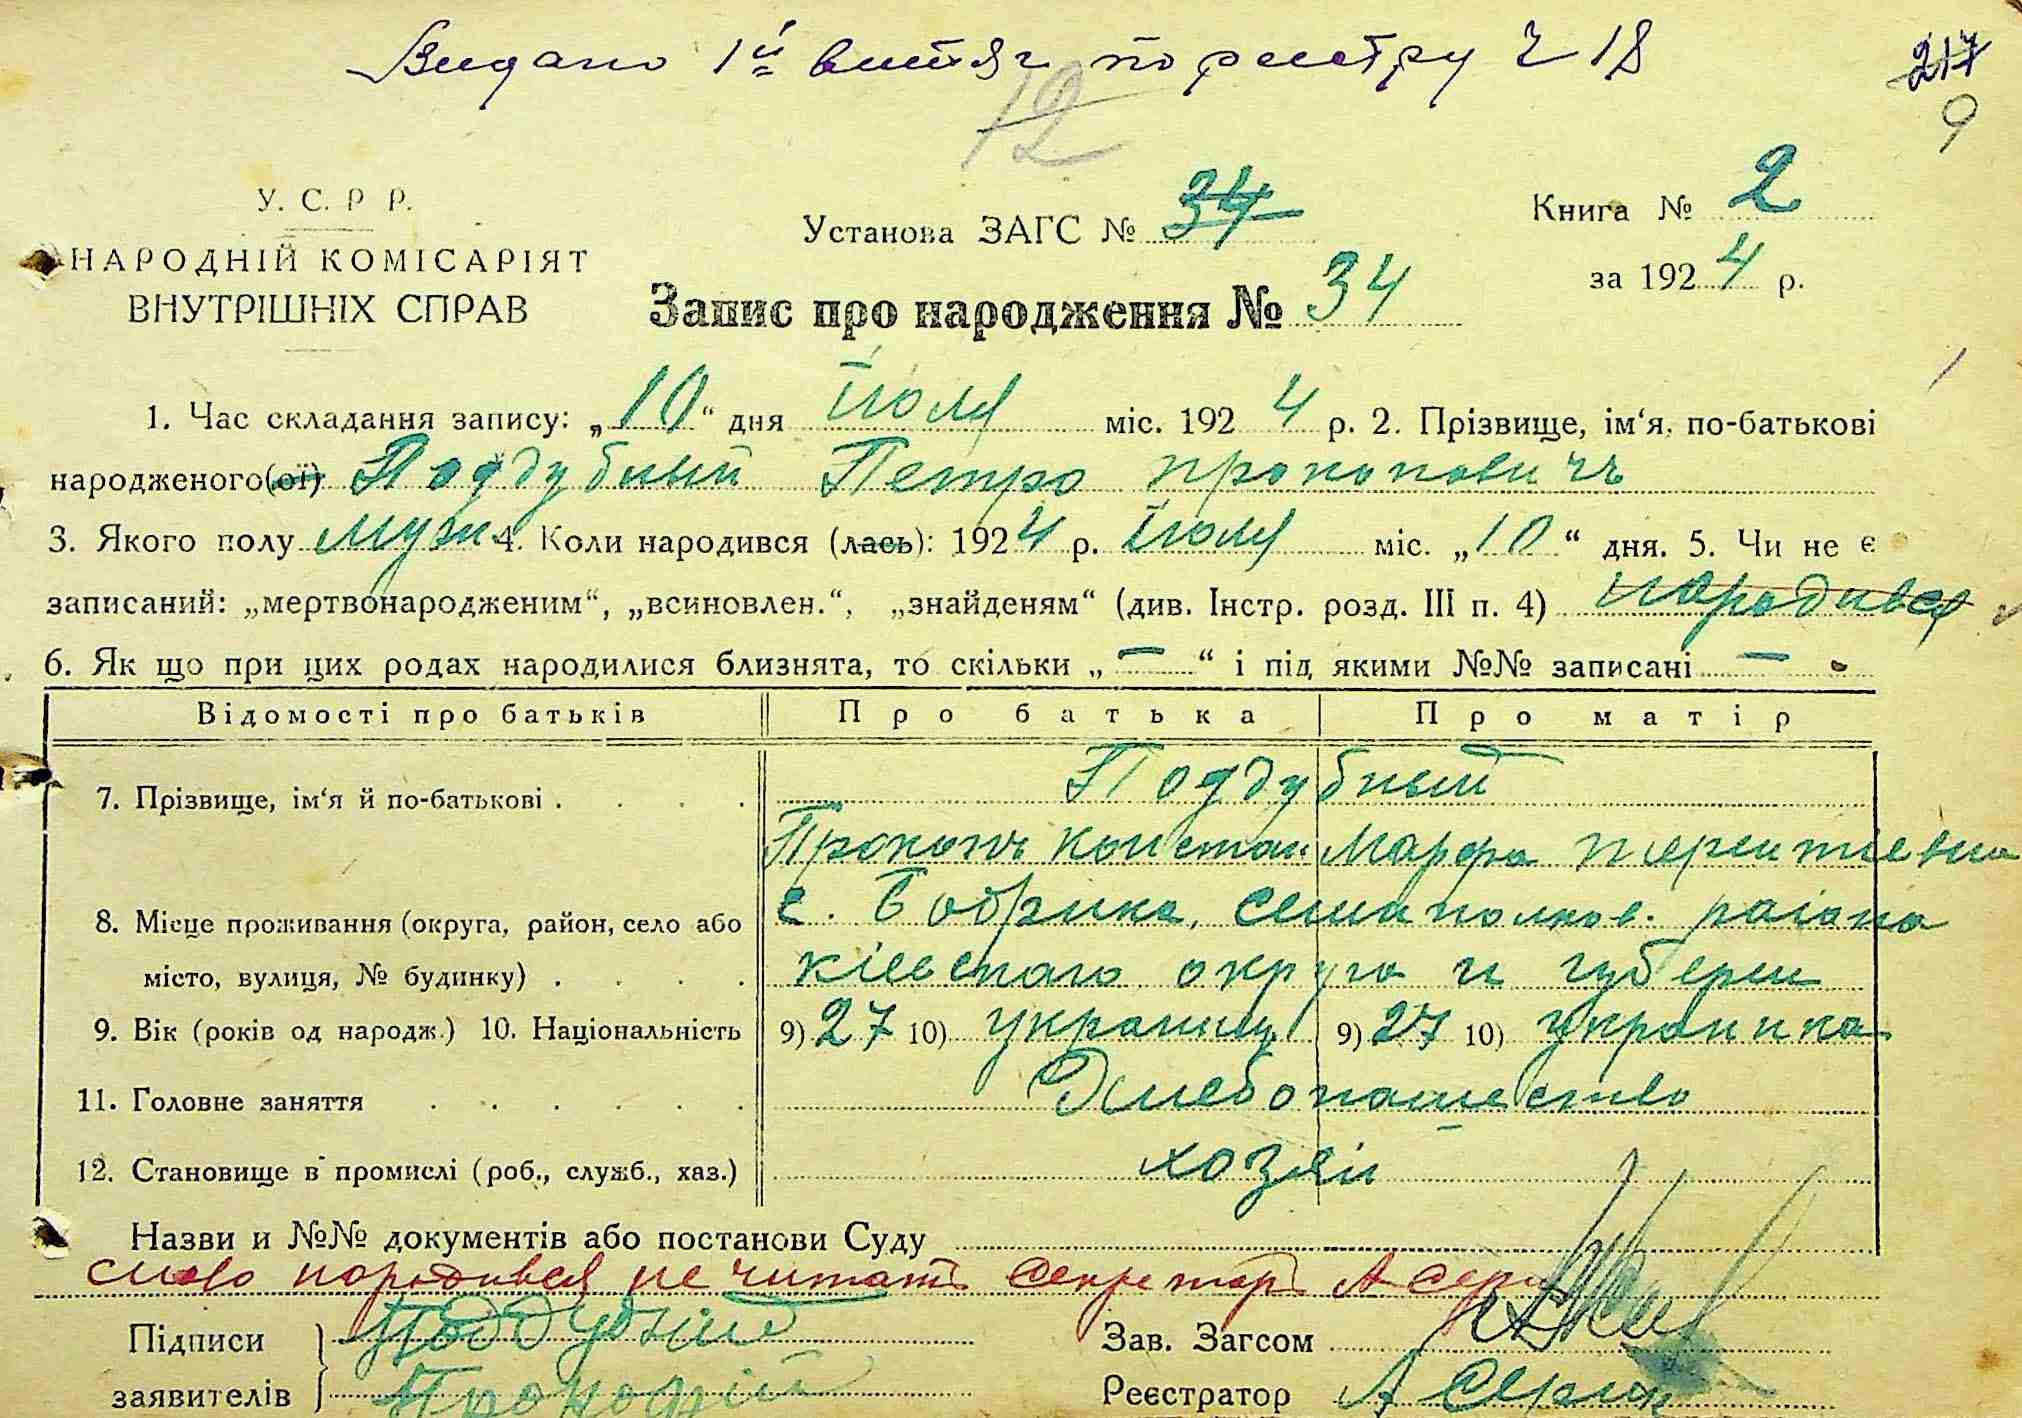 Видано 1й витяг по реєстру ч 18
217
9
12
У. С. Р Р.
НАРОДНІЙ КОМІСАРІЯТ
ВНУТРІШНІХ СПРАВ
Установа ЗАГС № 34
Книга № 2
за 1924 р.
Запис про народження № 34
1. Час складання запису: „10“ дня Июля міс. 1924 р. 2. Прізвище, ім‘я, по-батькові
народженого(ої) Поддубный Петро прокповичъ
3. Якого полу муж 4. Коли народився (лась): 1924 р. Июля міс. „10“ дня. 5. Чи не є
записаний: „мертвонародженим“, „всиновлен.“, „знайденям“ (див. Інстр. розд. III п. 4) народився
6. Як що при цих родах народилися близнята, то скільки „—“ і під якими №№ записані —
Відомості про батьків Про батька Про матір
7. Прізвище, ім‘я й по-батькові . . . . Поддубный
Прокопъ констан Марфа терентиевна
8. Місце проживання (округа, район, село або с. Бобрика, семиполков. раіона
місто, вулиця, № будинку) . . . . кіевскаго округа и губерни
9. Вік (років од народж.) 10. Національність 9) 27 10) украинц 9) 27 10) украинка
11. Головне заняття . . . . . . Хлебопашество
12. Становище в промислі (роб., служб., хаз.) хозяін
Назви и №№ документів або постанови Суду
слово народився не читать секретарь А Серг
Підписи Поддубний
заявителів Прокофій
Зав. Загсом
Реєстратор А